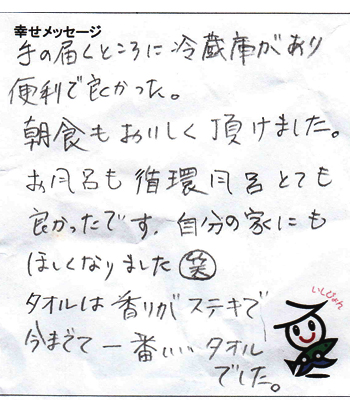 幸せメッセージ
手の届くところに冷蔵庫があり
便利で良かった。
朝食もおいしく頂けました。
お風呂も循環風呂とても
良かったです。自分の家にも
ほしくなりました笑
タオルは香りがステキで
今までで一番いいタオル
でした。
いしぴょん